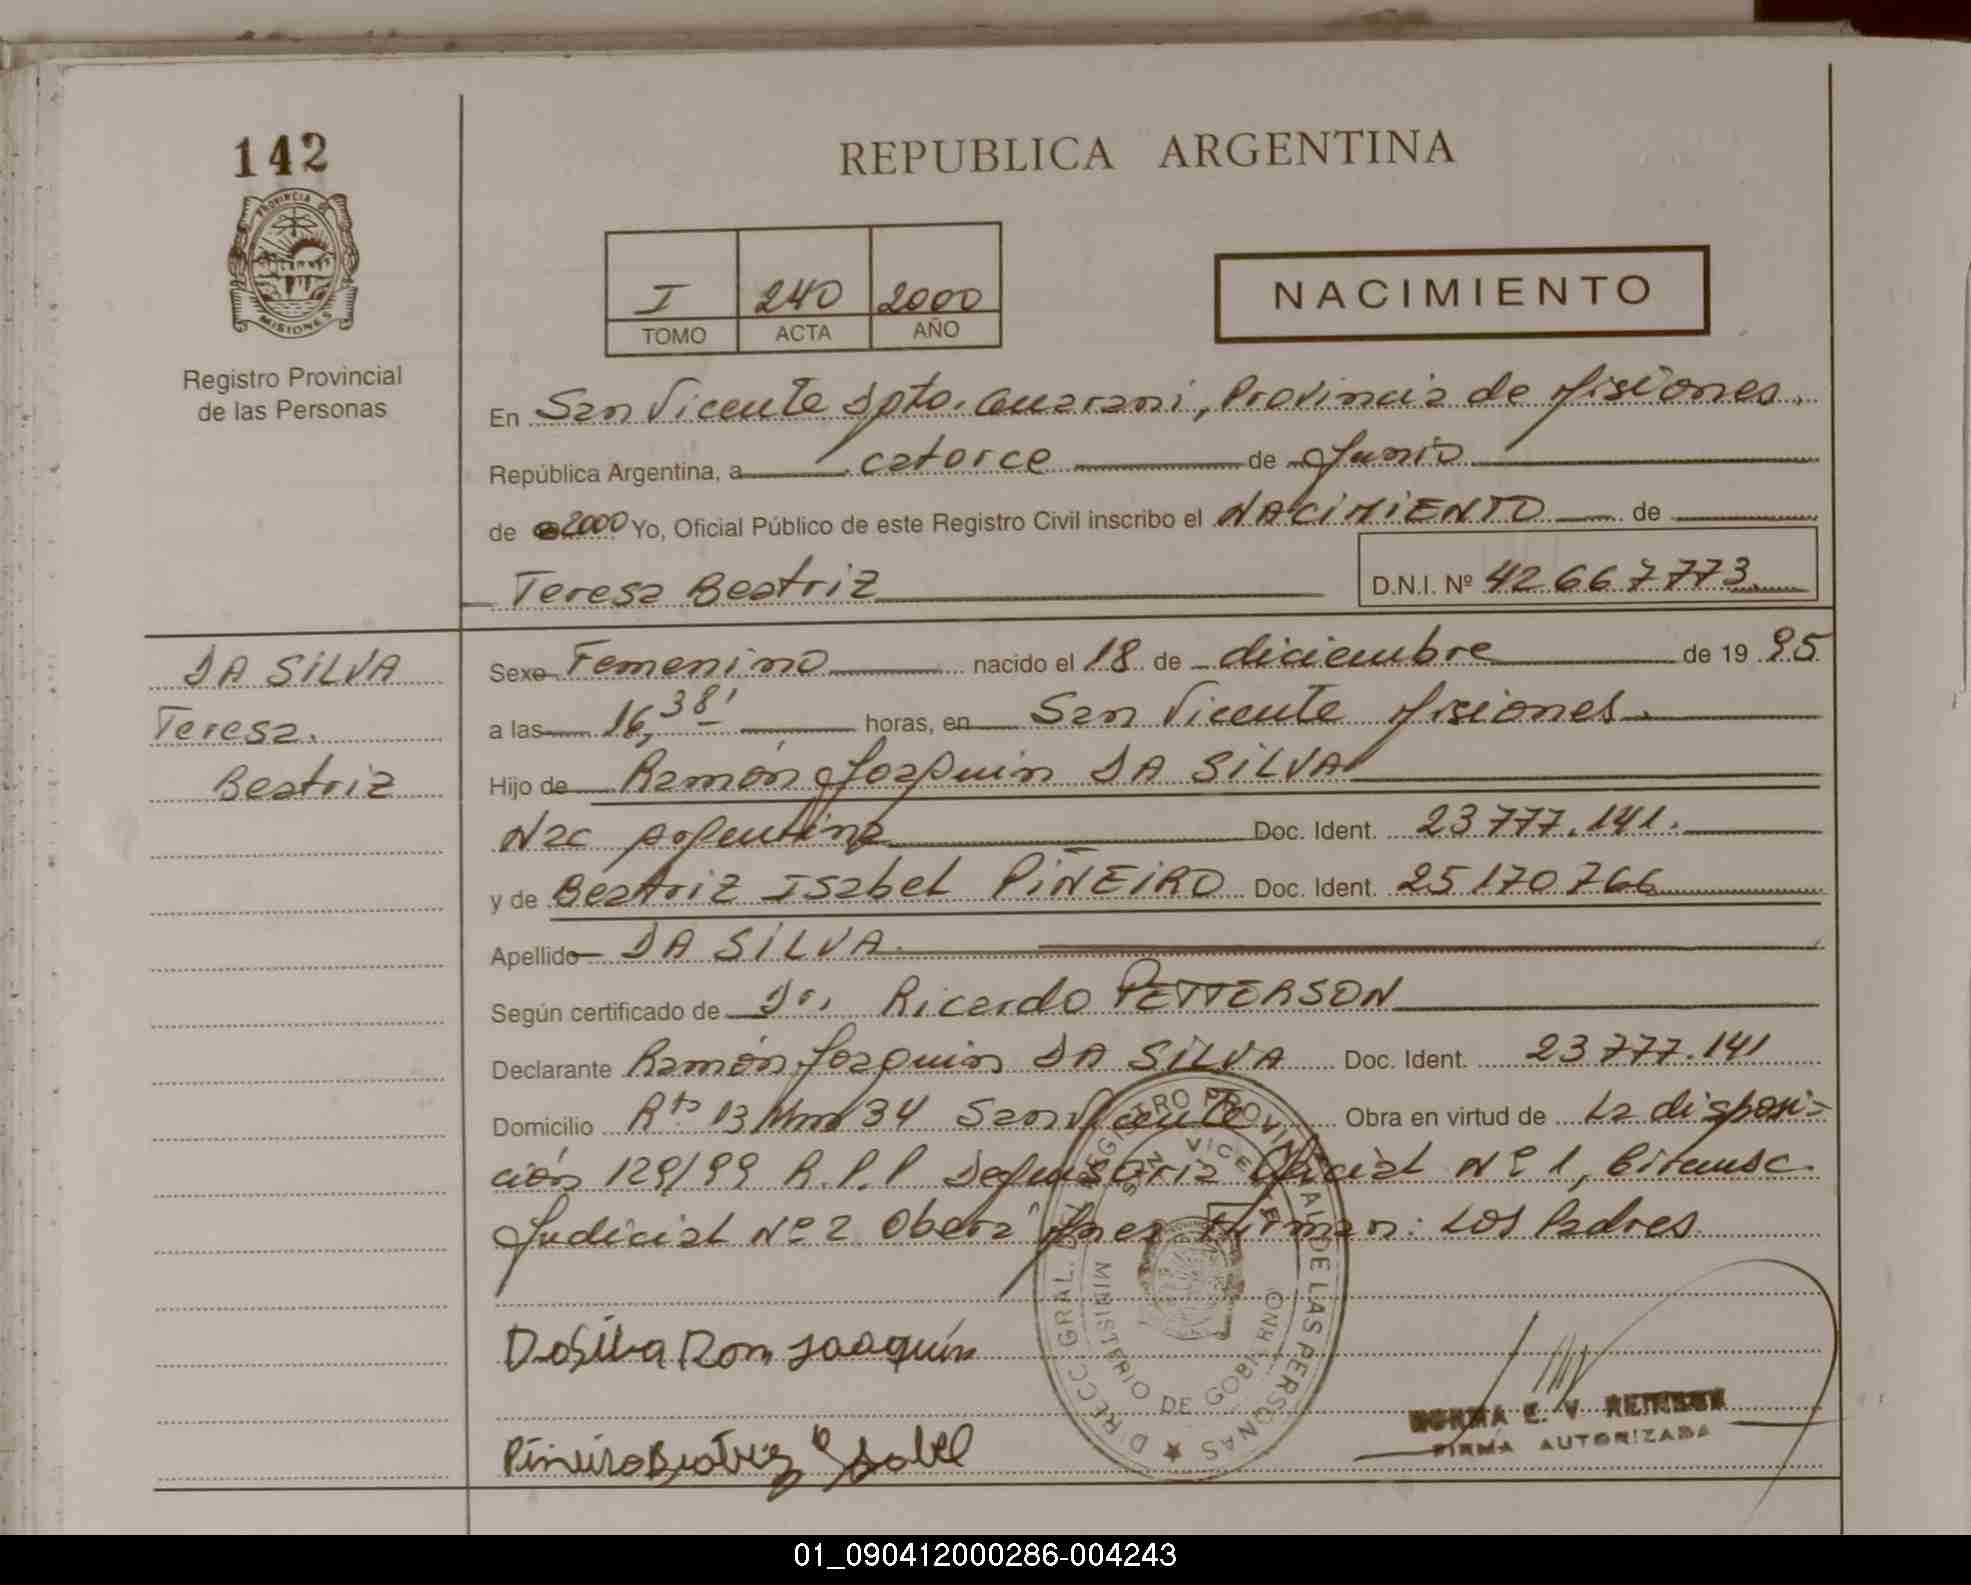 142
REPUBLICA ARGENTINA
PROVINCIA DE
MISIONES
I 240 2000
TOMO ACTA AÑO
NACIMIENTO
Registro Provincial
de las Personas
En San Vicente Dpto. Guarani, Provincia de Misiones.
República Argentina, a catorce de Junio
de 2000 Yo, Oficial Público de este Registro Civil inscribo el NACIMIENTO de
Teresa Beatriz D.N.I. Nº 42667773
DA SILVA
Teresa.
Beatriz
Sexo Femenino nacido el 18 de diciembre de 19 95
a las 16,38' horas, en San Vicente Misiones.
Hijo de Ramón Joaquin DA SILVA
Nac argentina Doc. Ident. 23777.141.
y de Beatriz Isabel PIÑEIRO Doc. Ident. 25170766
Apellido DA SILVA.
Según certificado de Dr. Ricardo PETTERSON
Declarante Ramón Joaquin DA SILVA Doc. Ident. 23777.141
Domicilio Rta 13 Km 34 San Vicente Obra en virtud de La disposi-
ción 129/99 R.P.P Defensoria Oficial Nº 1, Circunsc.
Judicial Nº 2 Obera Mnes Firman: Los Padres
DIRECC GRAL. DEL REGISTRO PROVINCIAL DE LAS PERSONAS
SAN VICENTE
MINISTERIO DE GOBIERNO
Dasilva Ram Joaquín
Piñeiro Beatriz Isabel
NORMA E. V.
FIRMA AUTORIZADA
01_090412000286-004243